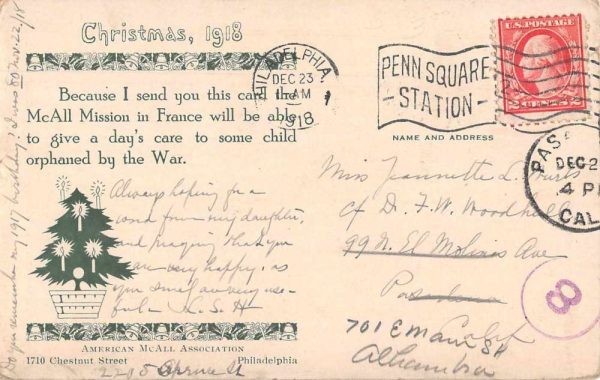 Christmas, 1918
Because I send you this card the
McAll Mission in France will be able
to give a day's care to some child
orphaned by the War.
Always hoping for a
word from my daughter,
and praying that you
are very happy, as
you surely are very use-
ful - K. S. H
AMERICAN MCALL ASSOCIATION
1710 Chestnut Street Philadelphia
2215 Spruce St
Do you remember my 1917 birthday? I was 80 Nov. 22/18
PHILADELPHIA
DEC 23
AM
1918
1
PENN SQUARE
STATION
U.S. POSTAGE
2 CENTS 2
NAME AND ADDRESS
Miss Jeannette L.
c/o Dr. F. W. Woodhull
99 N. El Molino Ave
Pasadena
701 E Main St
Alhambra
PAS
DEC 2
4 P
CAL
8